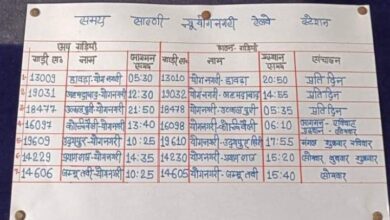 समय सारणी न्यू योग नगरी रेलवे स्टेशन
गाड़ी सं० नाम आगमन समय गाड़ी सं० नाम प्रस्थान समय संचालन
13009 हावड़ा-योगनगरी 05:30 13010 योगनगरी-हावड़ा 20:50 प्रतिदिन
19031 अहमदाबाद-योगनगरी 12:30 19032 योगनगरी-अहमदाबाद 14:55 प्रतिदिन
18477 उत्कल पुरी-योगनगरी 21:50 18478 योगनगरी-उत्कल पुरी 05:35 प्रतिदिन
16097 कोच्चीवेली-योगनगरी 13:40 16098 योगनगरी-कोच्चीवेली 06:10 आगमन-रविवार प्रस्थान-सोमवार
19609 उदयपुर-योगनगरी 10:25 19610 योगनगरी-उदयपुर सिटी 17:55 शुक्रवार रविवार
14229 प्रयागराज-योगनगरी 14:35 योगनगरी-प्रयागराज 15:20 सोमवार बुधवार शुक्रवार
14606 जम्मू तवी-योगनगरी 10:25 14605 योगनगरी-जम्मू तवी 05:40 सोमवार